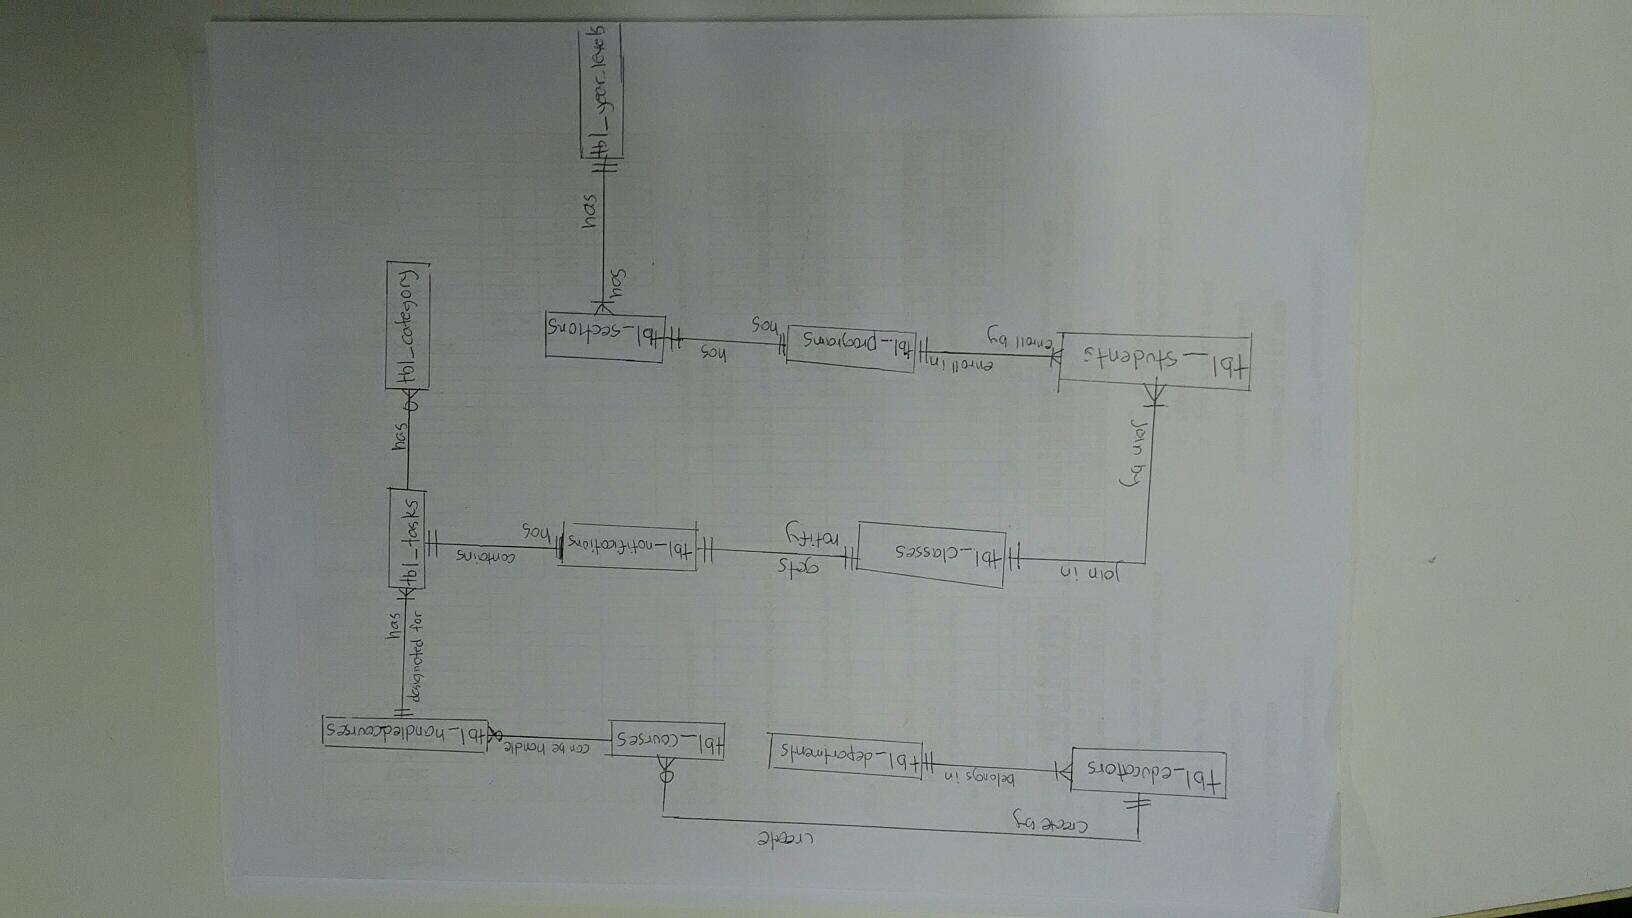 create
create by
tbl_educators
belongs in
tbl_departments
tbl_courses
can be handle
tbl_handledcourses
designated for
has
join in
tbl_classes
gets
notify
tbl_notifications
contains
has
tbl_tasks
join by
has
tbl_students
enroll in
enroll by
tbl_programs
has
has
tbl_sections
tbl_category
has
has
tbl_year_levels